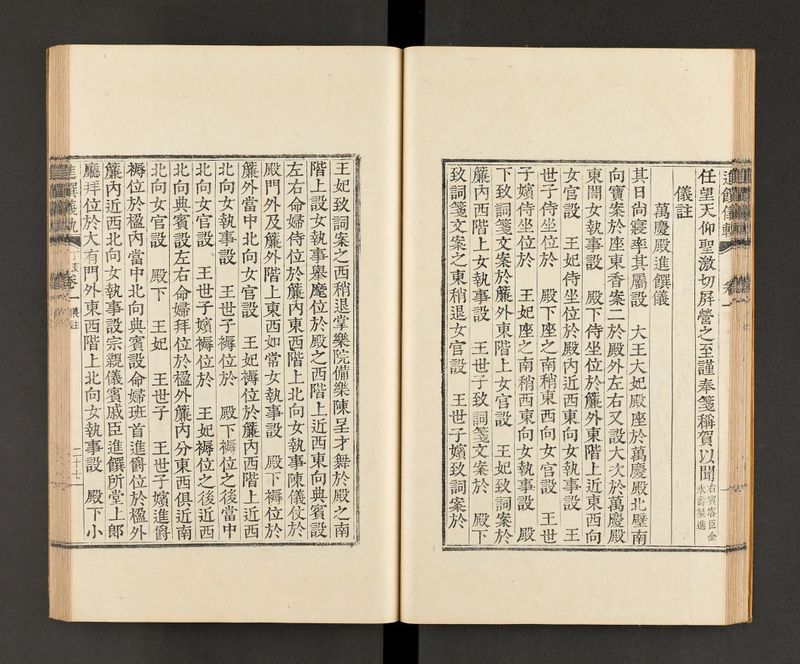 任望天仰聖激切屛營之至謹奉箋稱賀以聞右賓客臣金永壽製進
儀註
萬慶殿進饌儀
其日尙寢率其屬設　大王大妃殿座於萬慶殿北壁南
向寶案於座東香案二於殿外左右又設大次於萬慶殿
東閤女執事設　殿下侍坐位於簾外東階上近東西向
女官設　王妃侍坐位於殿內近西東向女執事設　王
世子侍坐位於　殿下座之南稍東西向女官設　王世
子嬪侍坐位於　王妃座之南稍西東向女執事設　殿
下致詞箋文案於簾外東階上女官設　王妃致詞案於
簾內西階上女執事設　王世子致詞箋文案於　殿下
致詞箋文案之東稍退女官設　王世子嬪致詞案於
王妃致詞案之西稍退掌樂院備樂陳呈才舞於殿之南
階上設女執事擧麾位於殿之西階上近西東向典賓設
左右命婦侍位於簾內東西階上北向女執事陳儀仗於
殿門外及簾外階上東西如常女執事設　殿下褥位於
簾外當中北向女官設　王妃褥位於簾內西階上近西
北向女執事設　王世子褥位於　殿下褥位之後當中
北向女官設　王世子嬪褥位於　王妃褥位之後近西
北向典賓設左右命婦拜位於楹外簾內分東西俱近南
北向女官設　殿下　王妃　王世子　王世子嬪進爵
褥位於楹內當中北向典賓設命婦班首進爵位於楹外
簾內近西北向女執事設宗親儀賓戚臣進饌所堂上郞
廳拜位於大有門外東西階上北向女執事設　殿下小
進饌儀軌　卷一　儀註　二十七